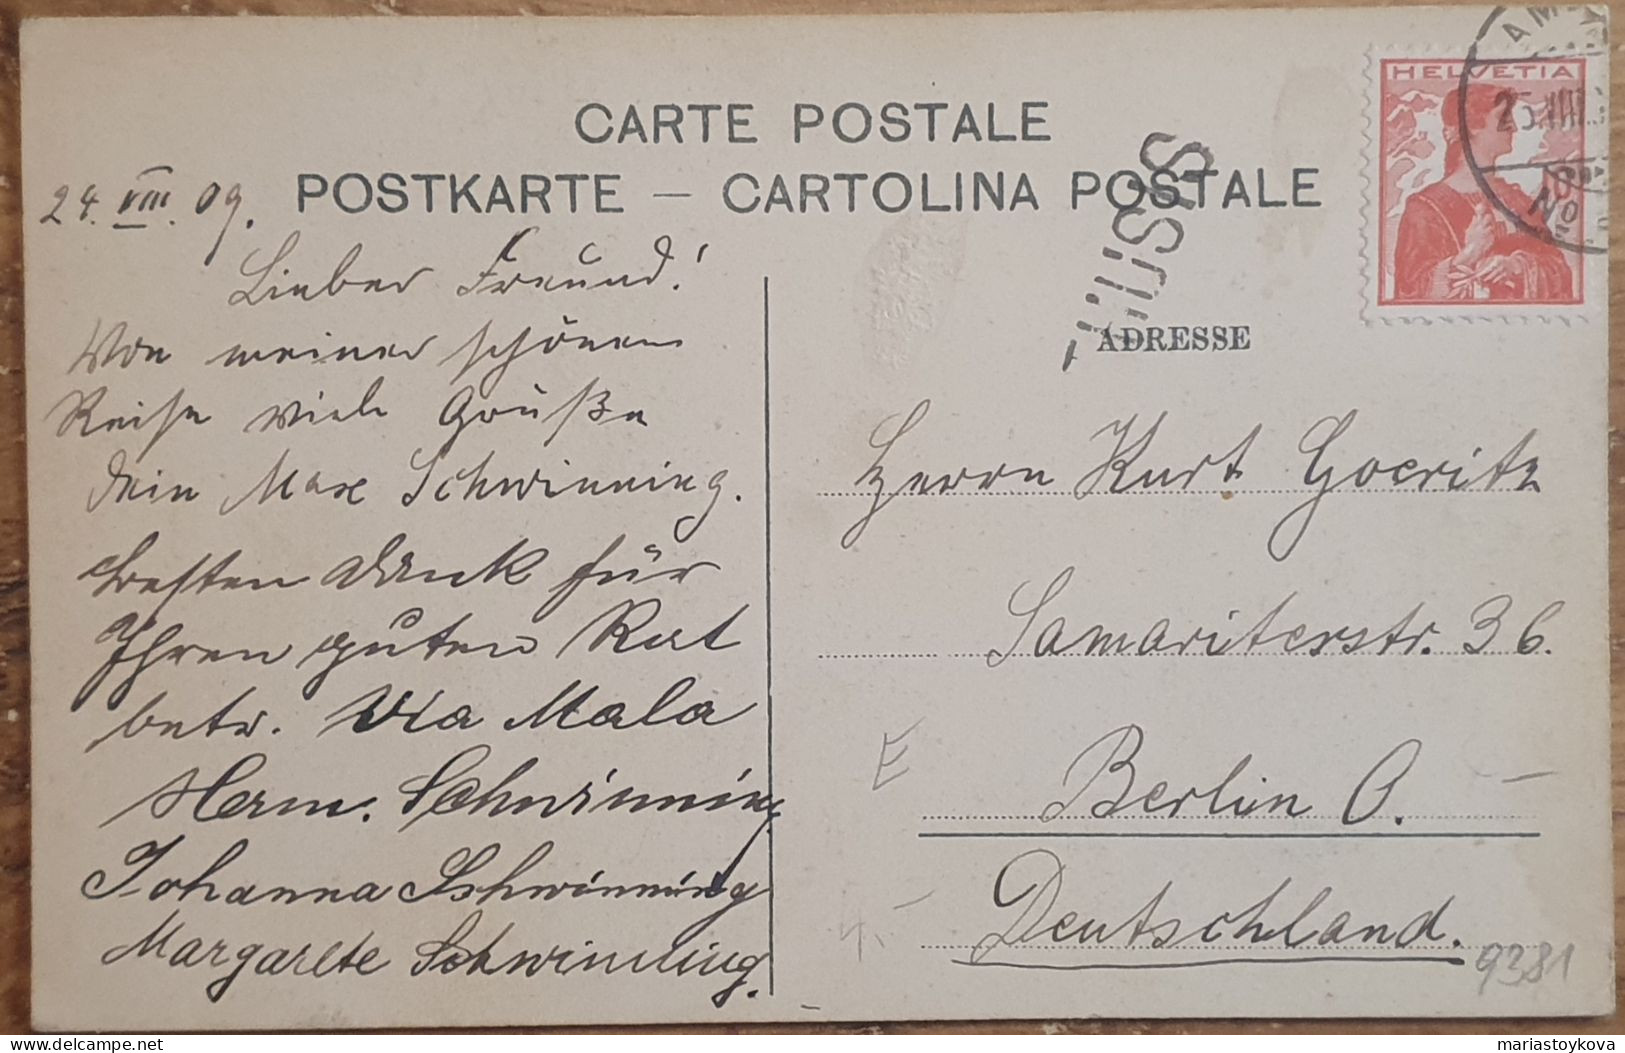 CARTE POSTALE
POSTKARTE — CARTOLINA POSTALE
24. VIII. 09.
Lieber Freund!
Von meiner schönen
Reise viele Grüße
dein Max Schwinning.
Besten Dank für
Ihren guten Rat
betr. Via Mala
Herm. Schwinning
Johanna Schwinning
Margarete Schwinning.
HELVETIA
AMB
25.VIII.
10
THUSIS
ADRESSE
Herrn Kurt Goeritz
Samariterstr. 36.
Berlin O.
Deutschland.
E
9381
delcampe.net
mariastoykova